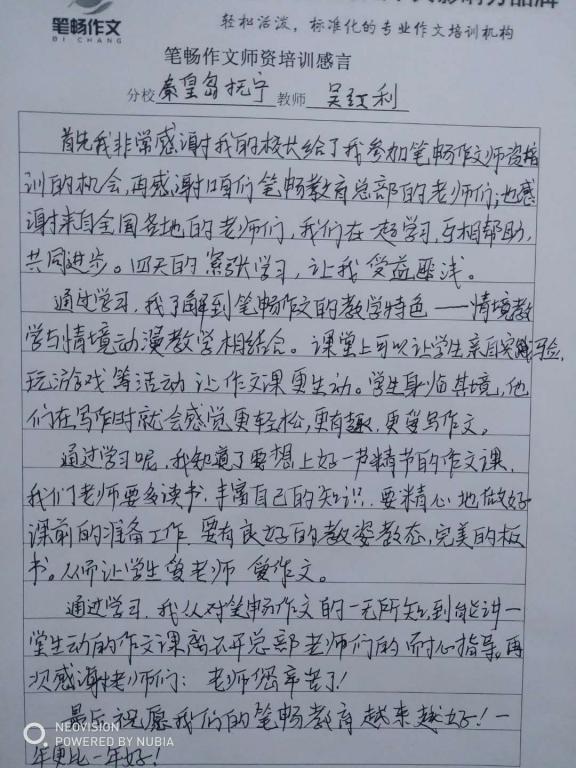 笔畅作文
BI CHANG
轻松活泼，标准化的专业作文培训机构
笔畅作文师资培训感言
分校 秦皇岛抚宁 教师 吴红利
首先我非常感谢我的校长给了我参加笔畅作文师资培
训的机会，再感谢咱们笔畅教育总部的老师们；也感
谢来自全国各地的老师们，我们在一起学习，互相帮助，
共同进步。四天的紧张学习，让我受益匪浅。
通过学习，我了解到笔畅作文的教学特色——情境教
学与情境动漫教学相结合。课堂上可以让学生亲自实践习验，
玩游戏等活动让作文课更生动。学生身临其境，他
们在写作时就会感觉更轻松，更有趣，更爱写作文。
通过学习呢，我知道了要想上好一节精节的作文课，
我们老师要多读书，丰富自己的知识，要精心地做好
课前的准备工作，要有良好的教姿教态，完美的板
书。从而让学生爱老师 爱作文。
通过学习，我从对笔畅作文的一无所知到能讲一
堂生动的作文课离不开总部老师们的耐心指导。再
次感谢老师们：老师您辛苦了！
最后祝愿我们的笔畅教育越来越好！一
年更比一年好！
NEOVISION
POWERED BY NUBIA